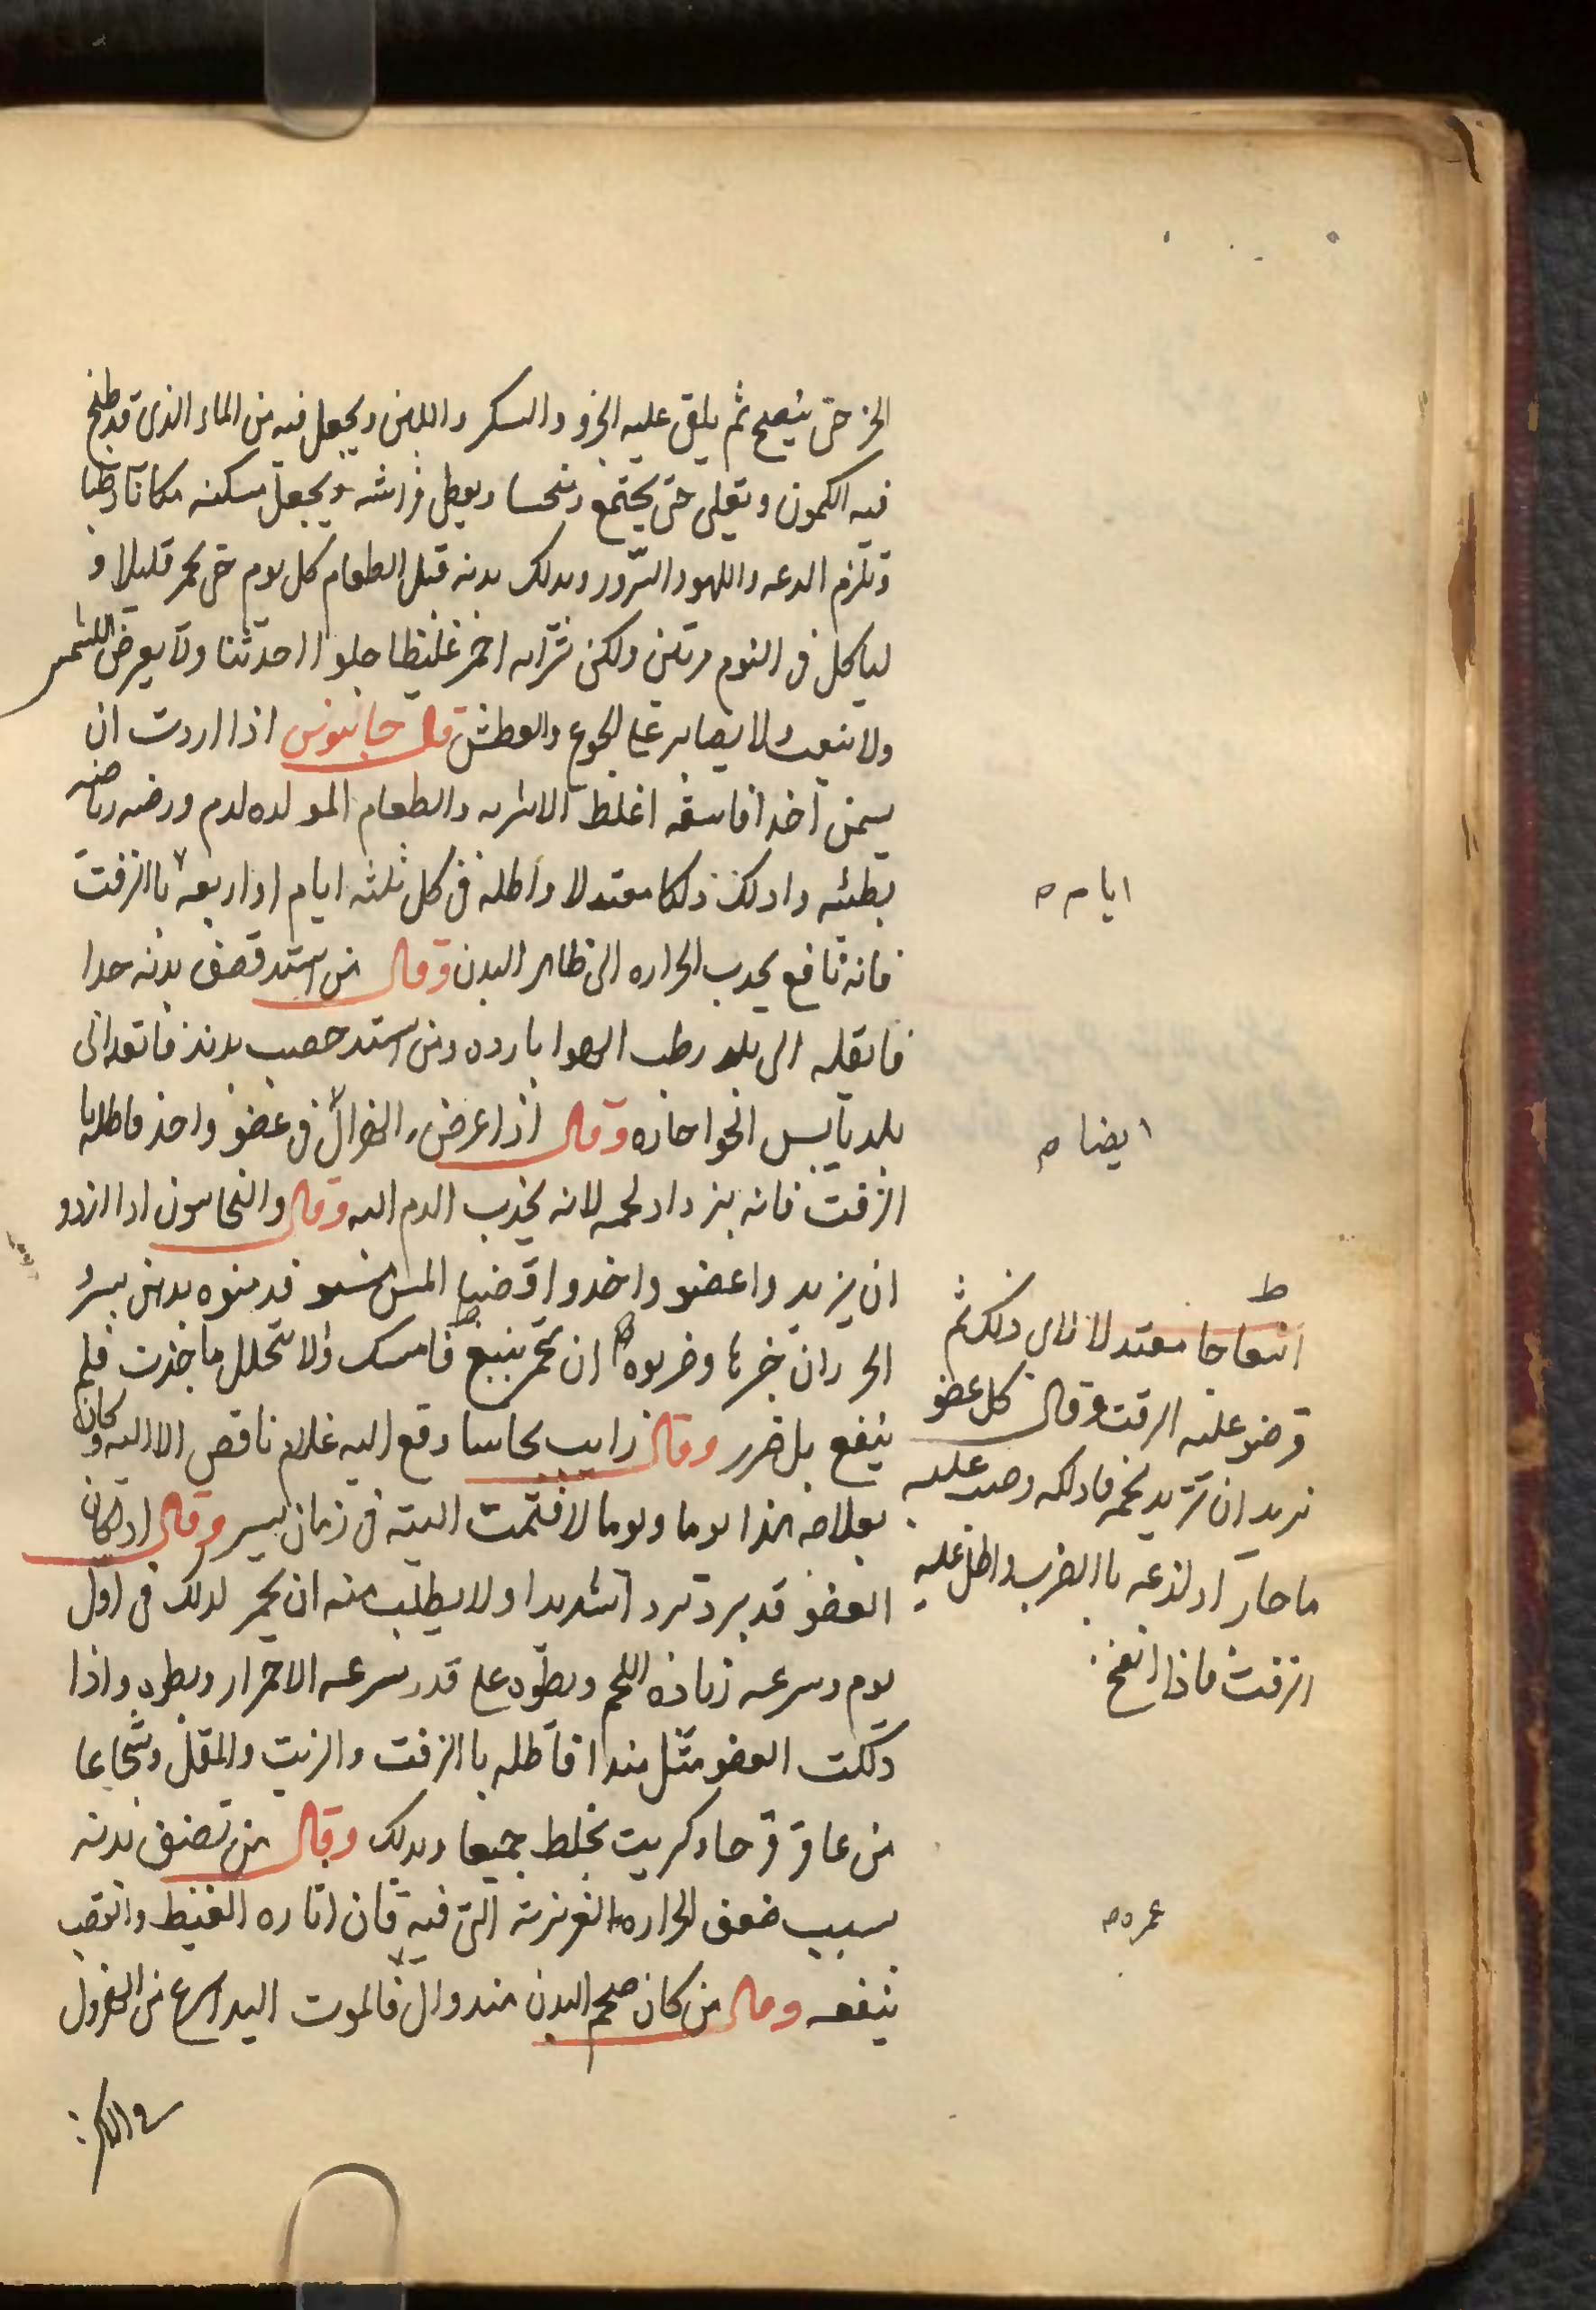 الخز حتى ينضج ثم يلقى عليه الجزو والسكر واللبن ويجعل فيه من الماء الذى قد طبخ
فيه الكمون ويغلى حتى يجتمع ويتحسا ويوطى فراشه ويجعل مسكنه مكانا رطبا
وتلزم الدعه واللهو والسرور ويدلك بدنه قبل الطعام كل يوم حتى يحمر قليلا و
لياكل فى اليوم مرتين ولكن شرابه احمر غليظا حلوا حدثنا ولا يعرض للشمس
ولا يتعب ولا يصابر على الجوع والعطش قال جالينوس اذا اردت ان
يسمن احدا فاسقه اغلظ الاشربه والطعام المولده لدم ورضه رياضه
بطيئه وادلك دلكا معتدلا واطله فى كل ثلثه ايام او اربعه باالزفت
فانه نافع يجدب الحراره الى ظاهر البدن وقال من اشتد قصف بدنه جدا
فانقله الى بلد رطب الهوا بارده ومن اشتد خصب بدنه فانقله الى
بلد يابس الهوا حاره وقال اذا عرض الهزال فى عضو واحد فاطله با
الزفت فانه يزداد لحمه لانه يجذب الدم اليه وقال والنخاسون اذا ارادو
ان يزيدوا عضو واحدوا قضيبا املس قد منوه بدهن يسير
الحر وان خبرها وضربوه ان يحمر ينتفخ فامسك ولا يتحلل ما جذبت فلم
ينفع بل ضرر وقال رايت نحاسا دفع اليه غلام ناقص الاليه وكان
بعلاجه هذا يوما ويوما لا فتمت اليته فى زمان يسير وقال اذ كان
العضو قد برد بردا شديدا ولا يطلب منه ان يحمر لدلك فى اول
يوم وسرعه زياده اللحم وبطوه على قدر سرعه الاحمرار وبطوه واذا
دلكت العضو مثل هذا فاطله باالزفت والزيت والمقل
من عاقر قرحا وكبريت تخلط جميعا ويدلك وقال من قضف بدنه
بسبب ضعف الحراره الغريزيه التى فيه فان اثاره الغيظ والغضب
ينفعه وقال من كان ضخم البدن فالموت اليه اسرع من المهزول
ايام م
ايضا م
ط
انتفاخا معتدلا ذلك ثم
وضو عليه الزفت وقال كل عضو
تريد ان تزيد لحمه فادلكه وصب عليه
ما حار او لذعه باالضرب واطل عليه
الزفت فاذا انتفخ
غيره م